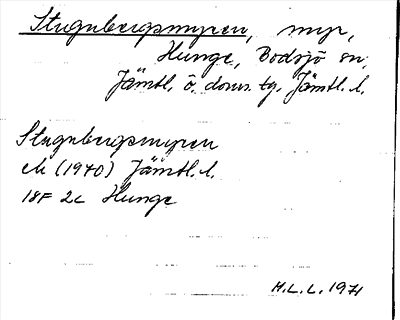 Stugubergsmyren, myr,
Hunge, Bodsjö sn,
Jämtl. ö. doms. tg, Jämtl. l.
Stugubergsmyren
ek (1940) Jämtl. l.
18F 2c Hunge
H.L.L. 1971